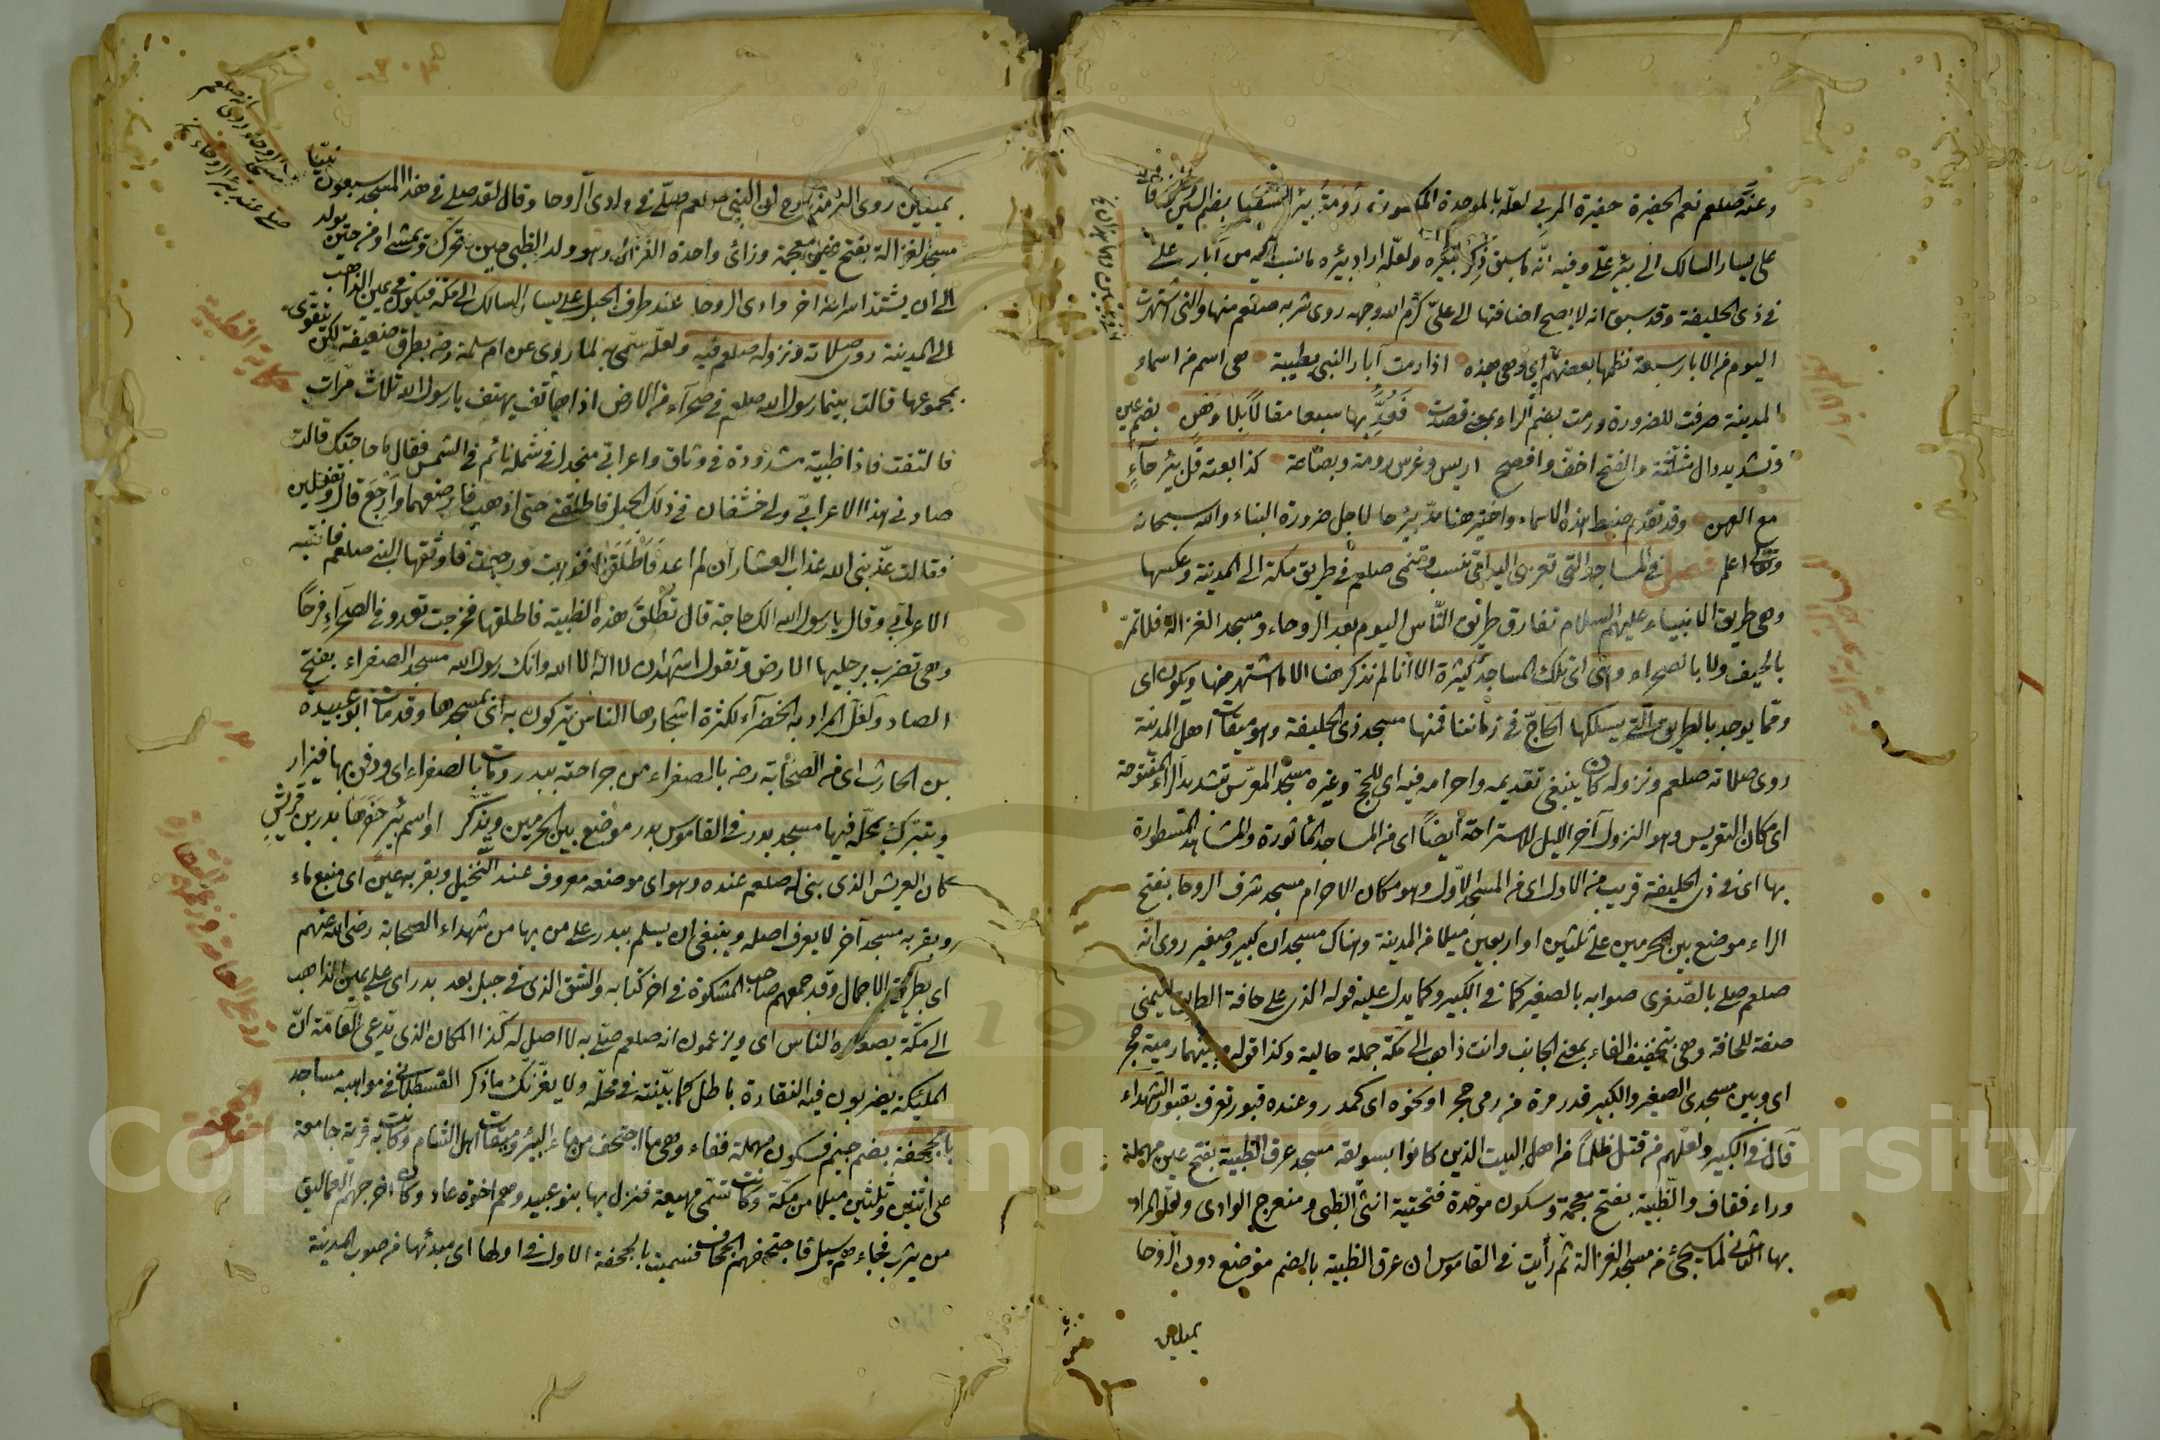 وعنه صلعم نعم الحفيرة حفيرة المزني لعله بالموحدة المكسورة رُومَةُ بئر السقيا بضم السين
على يسار السالك الى بئر علي وفيه انّه ما سبق ذكر بئره ولعلّه اراد بئره ما نسب اليه من آبار علي
في ذي الحليفة وقد سبق انه لا يصح اضافتها الى عليّ كرّم الله وجهه روى شربه صلعم منها والتى اشتهرت
اليوم من الابار سبعة نظمها بعضهم اى وهى هذه اذا رمت آبار النبي بطيبة هى اسم من اسماء
المدينة صرفت للضرورة ورمت بضم الراء بمعنى قصدت فَعُدَّ بها سبعا مقالًا بلا وَهَنِ بضم عين
وتشديد دال مثلثة والفتح اخفّ وافصح اريس وغرس رومة وبضاعة كذا بوصة قل بئر حآءٍ
مع العهن وقد تقدم ضبط هذه الاسماء واختير هنا مدّ بئر حا لاجل ضرورة البناء والله سبحانه
وتعالى اعلم فصل في المساجد التى تعزى اليه اى تنسب وتنمى صلعم في طريق مكة الى المدينة وعكسها
وهى طريق الانبياء عليهم السلام تفارق طريق النّاس اليوم بعد الروحاء ومسجد الغزالة فلا تمرّ
بالخيف ولا بالصحراء وهى اى تلك المساجد كثيرة الا انا لم نذكر هنا الا ما اشتهر منها ويكون اى
وممّا يوجد بالطريق التى يسلكها الحاجّ في زماننا فمنها مسجد ذى الحليفة وهو ميقات اهل المدينة
روى صلاته صلعم ونزوله كان ينبغى تقديمه واحرامه فيه اى للحج وغيره مسجد المعرّس بتشديد الراء المفتوحة
اى مكان التعريس وهو النزول آخر الليل للاستراحة ايضًا اى من المساجد المأثورة والمشاهد المسطورة
بها اى في ذى الحليفة قريب من الاول اى من المسجد الاوّل وهو مكان الاحرام مسجد شرف الروحا بفتح
الراء موضع بين الحرمين على ثلثين او اربعين ميلا من المدينة وهناك مسجدان كبير وصغير روى انّه
صلعم صلى بالصّغرى صوابه بالصغير كما في الكبير وكما يدل عليه قوله الذى على حافة الطريق اليمنى
صفة للحافة وهى بتخفيف الفاء بمعنى الجانب وانت ذاهب الى مكّة جملة حالية وكذا قوله وبينهما رمية حجر
اى وبين مسجدى الصغير والكبير قدر مرة من رمى حجر او نحوه اى كمدر وعنده قبور تعرف بقبور الشّهداء
قال في الكبير ولعلّهم من قتل ظلمًا من اهل البيت الذين كانوا بسويقة مسجد عرق الظبية بفتح عين مهملة
وراء فقاف والظبية بفتح معجمة وسكون موحّدة فتحتية انثى الظبى ومنعرج الوادى ولعلّ المراد
بها الثانى لما سيجئ من مسجد الغزالة ثم رأيت في القاموس ان عرق الظبية بالضم موضع دون الروحا
بميلين
بميلين روى الترمذى لان النبى صلعم صلّى في وادى الروحا وقال لقد صلى في هذا المسجد سبعون نبيّا
مسجد الغزالة بفتح غين معجمة وزاى واحدة الغزال وهو ولد الظبى حين تحرّك ومشى او من حين يولد
الى ان يشتد امراله اخر وادى الروحا عند طرف الجبل على يسار السالك الى مكّة فيكون في يمين الذاهب
الى المدينة روى صلاته ونزوله صلعم فيه ولعلّه سمّى به لما روى عن ام سلمة رضه بطرق ضعيفة لكن يتقوى
بمجموعها قالت بينما رسول الله صلعم في صحرآء من الارض اذا هاتف يهتف يا رسول الله ثلاث مرّات
فالتفت فاذا ظبية مشدودة في وثاق واعرابيّ منجدل في شملة نائم في الشمس فقال ما حاجتك قالت
صادنى هذا الاعرابيّ ولى خشفان في ذلك الجبل فاطلقنى حتى اذهب فارضعهما وارجع قال وتفعلين
فقالت عذّبنى الله عذاب العشار ان لم اعد فاطلقها فذهبت ورجعت فاوثقها النبى صلعم فانتبه
الاعرابى وقال يا رسول الله الك حاجة قال تطلق هذه الظبية فاطلقها فخرجت تعدو في الصحرآء فرحًا
وهى تضرب برجليها الارض وتقول اشهد ان لا اله الا الله وانك رسول الله مسجد الصفراء بفتح
الصاد ولعلّ المراد به الخضرآء لكثرة اشجارها الناس يتبركون به اى بمسجدها وقد مات ابو عبيدة
بن الحارث اى من الصّحابة رضه بالصفراء من جراحته ببدر ومات بالصفراء اى ودفن بها فيزار
ويتبرك بمحلّه فيها مسجد بدر في القاموس بدر موضع بين الحرمين ويذكّر او اسم بئر حفرها بدر بن قريش
كان العريش الذى بنى له صلعم عنده وهو اى موضعه معروف عند النّخيل وبقربه عين اى منبع ماء
وبقربه مسجد آخر لا يعرف اصله وينبغى ان يسلم ببدر على من بها من شهداء الصحابة رضى الله عنهم
اى بطريق الاجمال وقد جمعهم صاحب المشكوة في اخر كتابه والشق الذى في جبل بعد بدر اى على يمين الذاهب
الى مكّة يصعده الناس اى ويزعمون انه صلعم صلّى به لا اصل له كذا المكان الذى تدعى العامّة انّ
الملئكة يضربون فيه النقارة باطل كما بيّنته في محلّه ولا يغرّنّك ما ذكر القسطلانى في مواهبه مساجد
بالجحفة بضم جيم فسكون مهملة ففاء وهى ما اجتحف من ماء البئر وميقات اهل الشام وكانت به قرية جامعة
على اثنين وثلثين ميلا من مكّة وكانت تسمّى مهيعة فنزل بها بنو عبيد وهم اخوة عاد وكان اخرجهم العماليق
من يثرب فجاءهم سيل فاجتحفهم الجحاف فسميت بالجحفة الاول في اولها اى مبدئها من صوب المدينة
حكاية الظبية
بدر